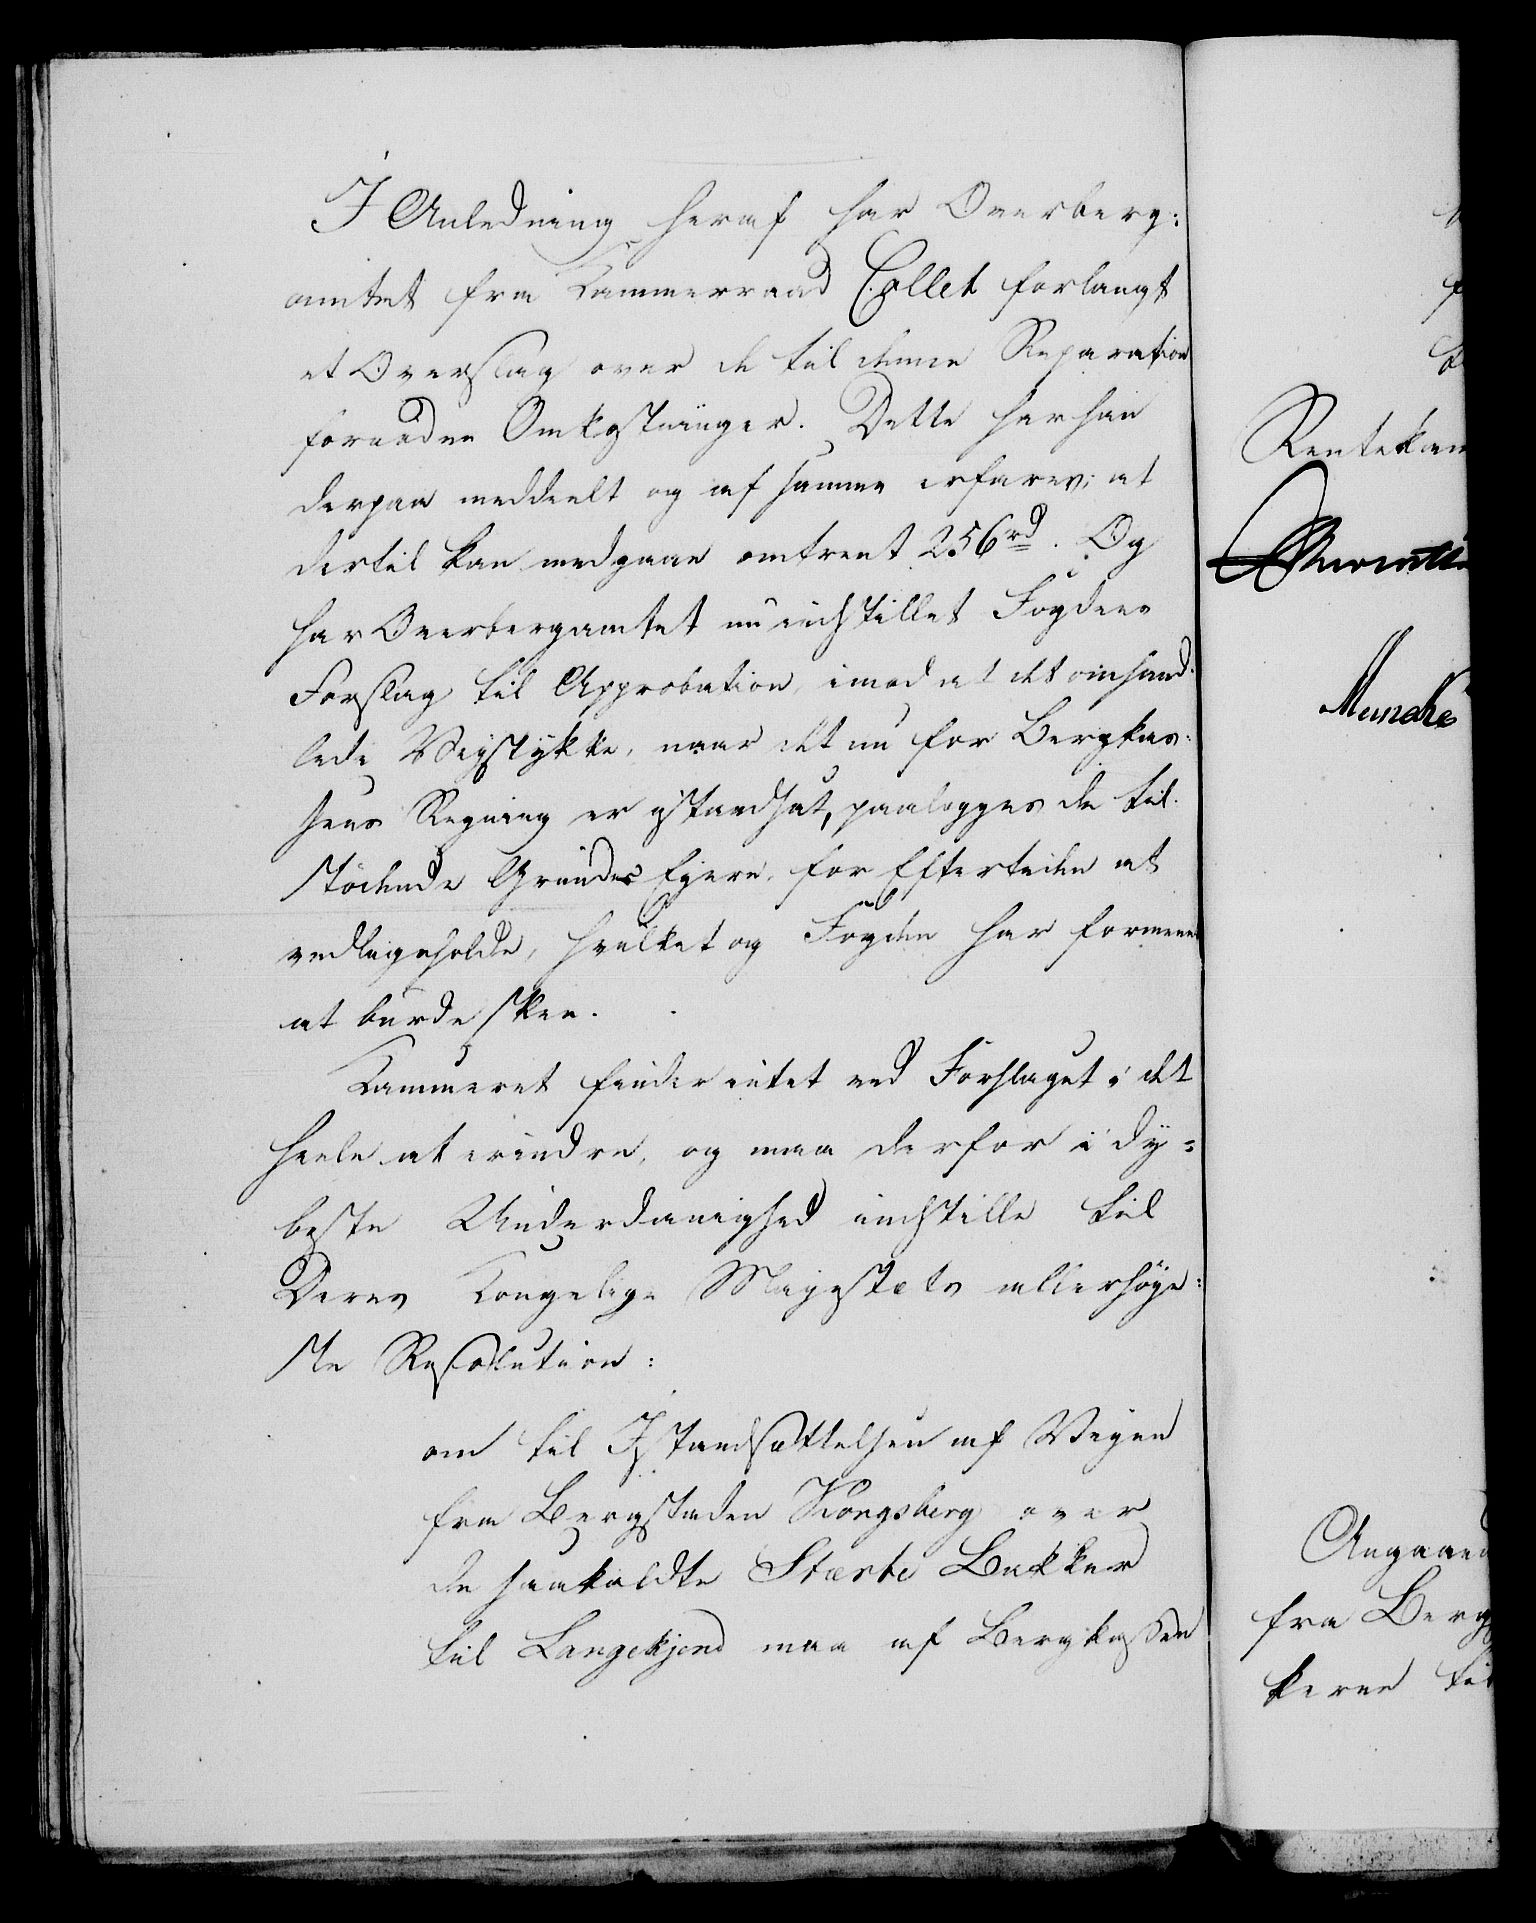 I Anledning heraf har Overberg:
amtet fra Kammerraad Collet forlangt
et Overslag over de til denne Reparation
fornødne Omkostninger. Dette har han
derpaa meddeelt og af samme erfares, at
dertil kan medgaae omtrent 256 rd. Og
har Overbergamtet nu indstillet Fogdens
Forslag til Approbation, imod at det omhand:
lede Veystykke, naar det nu for Bergkas:
sens Regning er istandsat, paalegges de til:
stødende Grundes Eyere, for Eftertiden at
vedligeholde, hvilket og Fogden har formeent
at burde skee.
Kammeret finder intet ved Forslaget i det
heele at erindre, og maa derfor i dy=
beste Underdanighed indstille til
Deres Kongelige Majestæts allerhøye:
ste Resolution:
om til Istandsættelsen af Veyen
fra Bergstaden Kongsberg over
de saakaldte Stærke Bakker
til Langekjend maa af Bergkassen
Rentekam
Mandix
Angaaend
fra Berg
kerne til